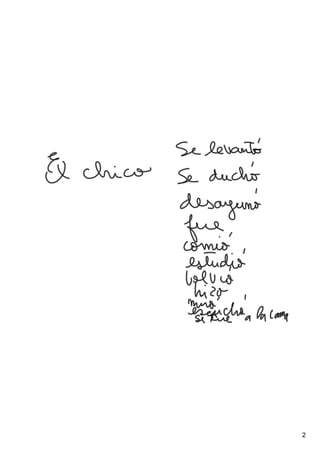 El chico
Se levantó
Se duchó
desayunó
fué
comió
estudió
volvio
hizo
miró
escuchó
se fue a la cama
2